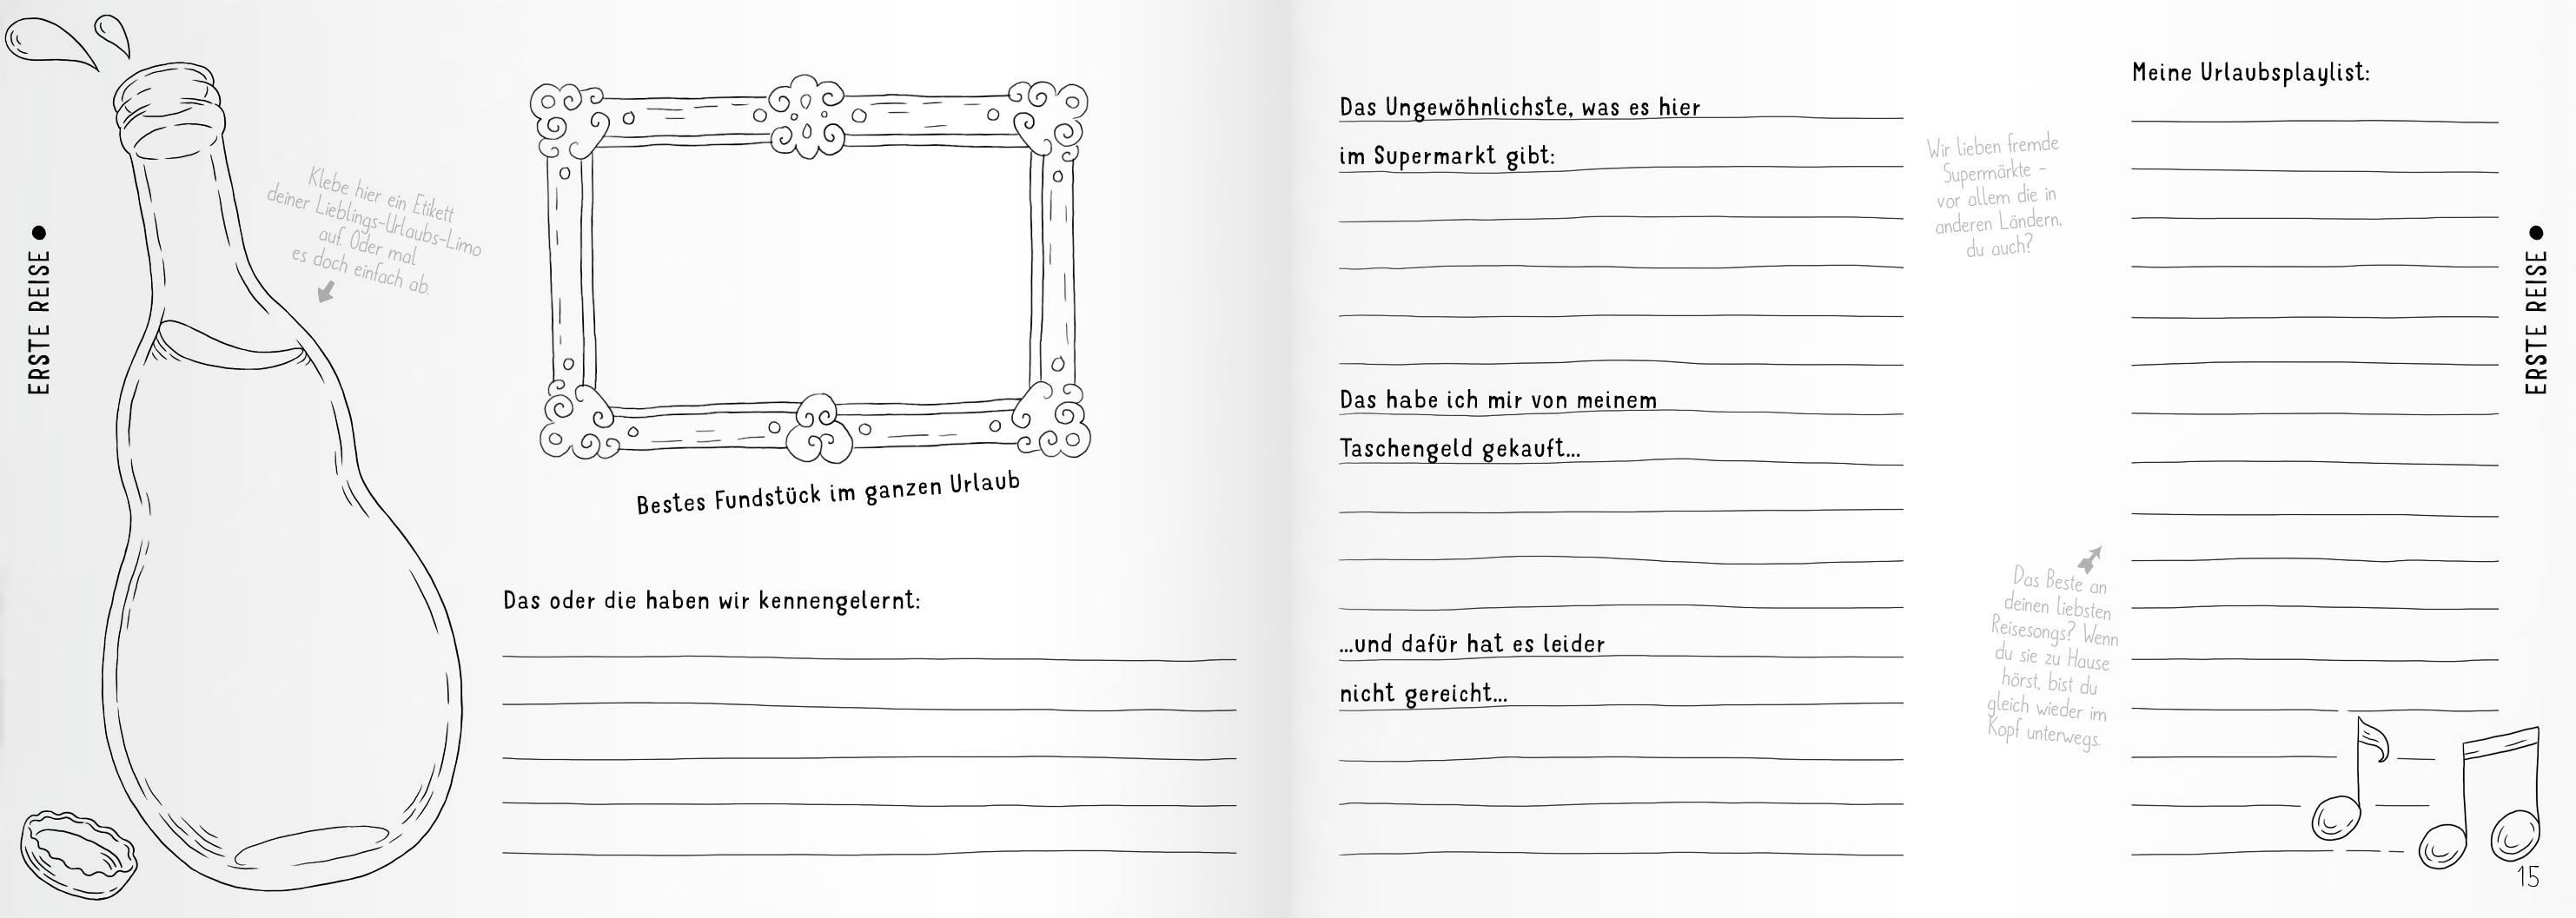 ERSTE REISE
Klebe hier ein Etikett
deiner Lieblings-Urlaubs-Limo
auf. Oder mal
es doch einfach ab.
Bestes Fundstück im ganzen Urlaub
Das oder die haben wir kennengelernt:
Das Ungewöhnlichste, was es hier
im Supermarkt gibt:
Wir lieben fremde
Supermärkte –
vor allem die in
anderen Ländern,
du auch?
Das habe ich mir von meinem
Taschengeld gekauft...
...und dafür hat es leider
nicht gereicht...
Meine Urlaubsplaylist:
Das Beste an
deinen liebsten
Reisesongs? Wenn
du sie zu Hause
hörst, bist du
gleich wieder im
Kopf unterwegs.
ERSTE REISE
15